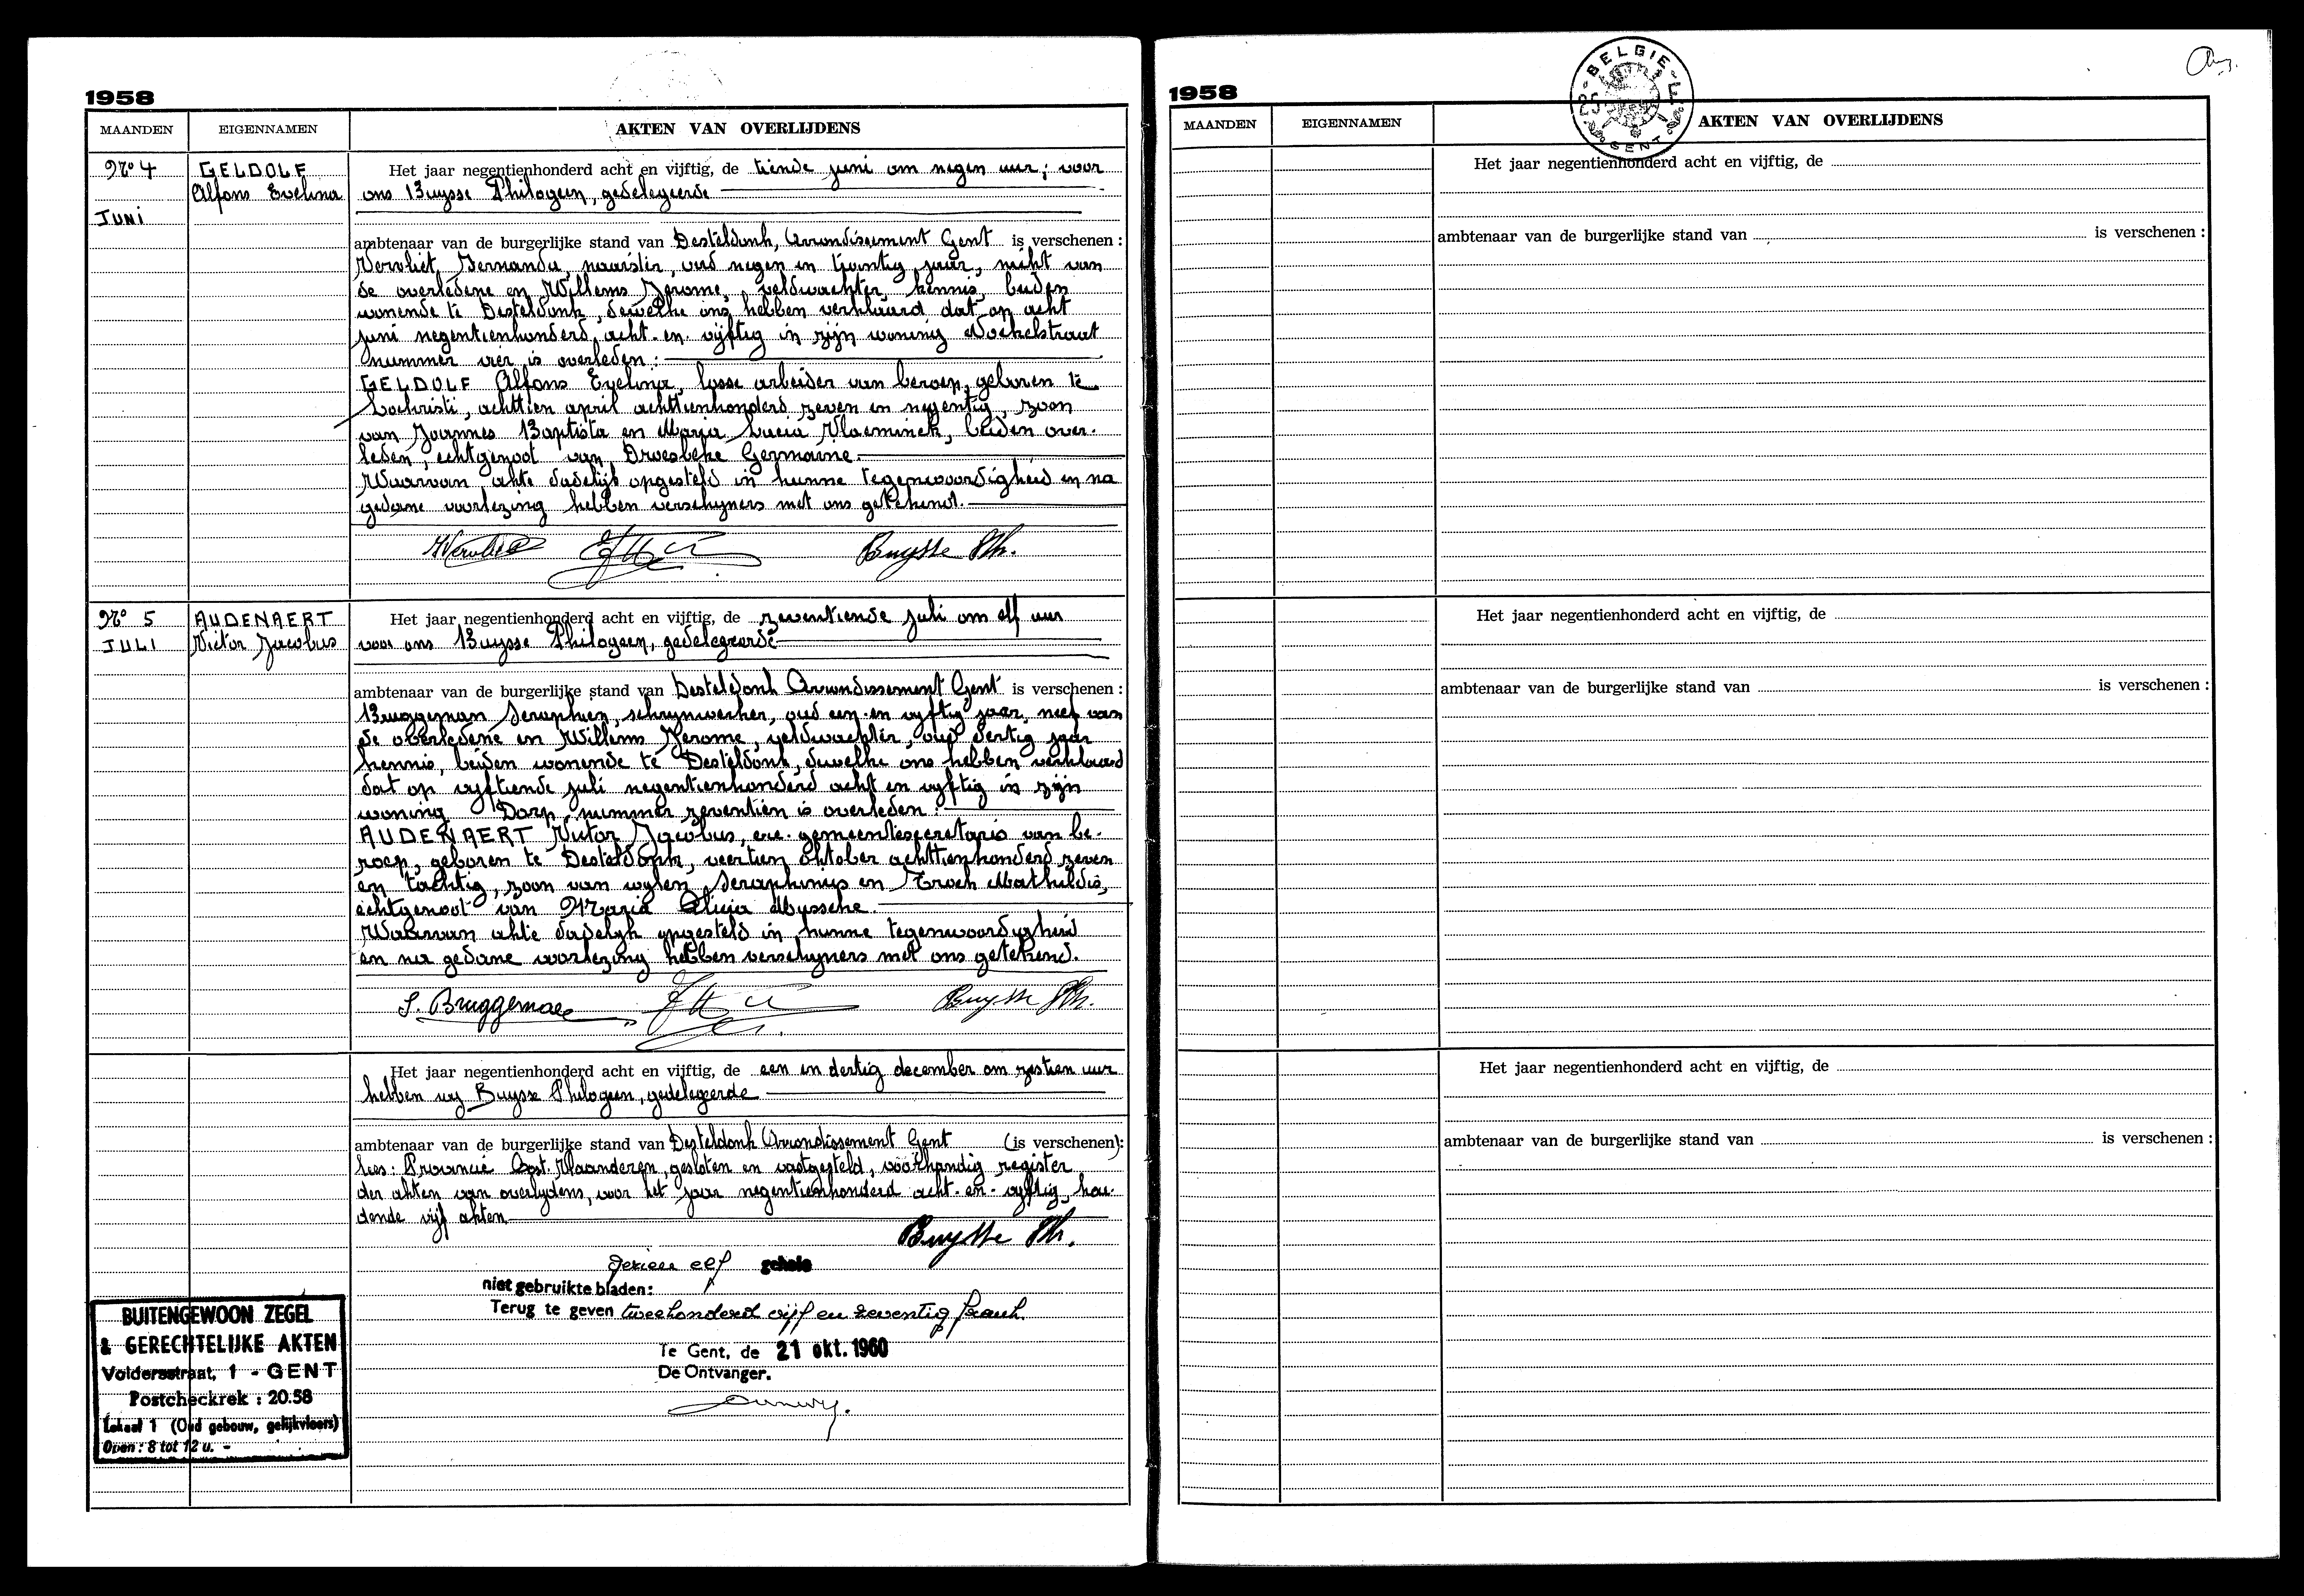 1958
MAANDEN EIGENNAMEN AKTEN VAN OVERLIJDENS
Nr° 4 GELDOLF Het jaar negentienhonderd acht en vijftig, de tiende juni om negen uur; voor
Alfons Evelina ons Buysse Philogeen, gedelegeerde
JUNI
ambtenaar van de burgerlijke stand van Desteldonk, Arrondissement Gent is verschenen :
Vervliet Fernanda, naaister, oud negen en twintig jaar, nicht van
de overledene en Willems Jerome, veldwachter, kennis, beiden
wonende te Desteldonk, dewelke ons hebben verklaard dat op acht
juni negentienhonderd acht-en-vijftig in zijn woning
nummer vier is overleden :
GELDOLF Alfons Evelina, losse arbeider van beroep, geboren te
Lochristi, achttien april achttienhonderd zeven en negentig, zoon
van Joannes Baptista en Maria Lucia Vlaeminck, beiden over-
leden, echtgenoot van Droesbeke Germaine.
Waarvan akte dadelijk opgesteld in hunne tegenwoordigheid en na
gedane voorlezing hebben verschijners met ons getekend.
Buysse Ph.
Nr° 5 AUDENAERT Het jaar negentienhonderd acht en vijftig, de zeventiende juli om elf uur
JULI Victor Jacobus voor ons Buysse Philogeen, gedelegeerde
ambtenaar van de burgerlijke stand van Desteldonk Arrondissement Gent is verschenen :
Bruggeman Seraphien, schrynwerker, oud een-en vyftig jaar, neef van
de overledene en Willems Jerome, veldwachter, oud dertig jaar
kennis, beiden wonende te Desteldonk, dewelke ons hebben verklaard
dat op vyftiende juli negentienhonderd acht en vyftig in zijn
woning Dorp, nummer zeventien is overleden :
AUDENAERT Victor Jacobus, ere-gemeentesecretaris van be-
roep, geboren te Desteldonk, veertien oktober achttienhonderd zeven
en tachtig, zoon van wylen Seraphinus en Troch Mathildis,
echtgenoot van Maria Alicia Mussche.
Waarvan akte dadelyk opgesteld in hunne tegenwoordigheid
en na gedane voorlezing hebben verschyners met ons getekend.
S. Bruggeman Buysse Ph.
Het jaar negentienhonderd acht en vijftig, de een en dertig december om zestien uur
hebben wy Buysse Philogeen, gedelegeerde
ambtenaar van de burgerlijke stand van Desteldonk Arrondissement Gent (is verschenen):
lees: Provincie Oost-Vlaanderen, gesloten en vastgesteld, voorhandig register
der akten van overlydens, voor het jaar negentienhonderd acht-en-vyftig, hou-
dende vijf akten
Buysse Ph.
elf gehele
niet gebruikte bladen:
Terug te geven tweehonderd vijf en zeventig frank.
Te Gent, de 21 okt. 1960
De Ontvanger.
BUITENGEWOON ZEGEL
& GERECHTELIJKE AKTEN
Voldersstraat, 1 - GENT
Postcheckrek : 20.58
Lokaal 1 (Oud gebouw, gelijkvloers)
Open : 8 tot 12 u. -
1958
BELGIE
GENT
MAANDEN EIGENNAMEN AKTEN VAN OVERLIJDENS
Het jaar negentienhonderd acht en vijftig, de
ambtenaar van de burgerlijke stand van is verschenen :
Het jaar negentienhonderd acht en vijftig, de
ambtenaar van de burgerlijke stand van is verschenen :
Het jaar negentienhonderd acht en vijftig, de
ambtenaar van de burgerlijke stand van is verschenen :